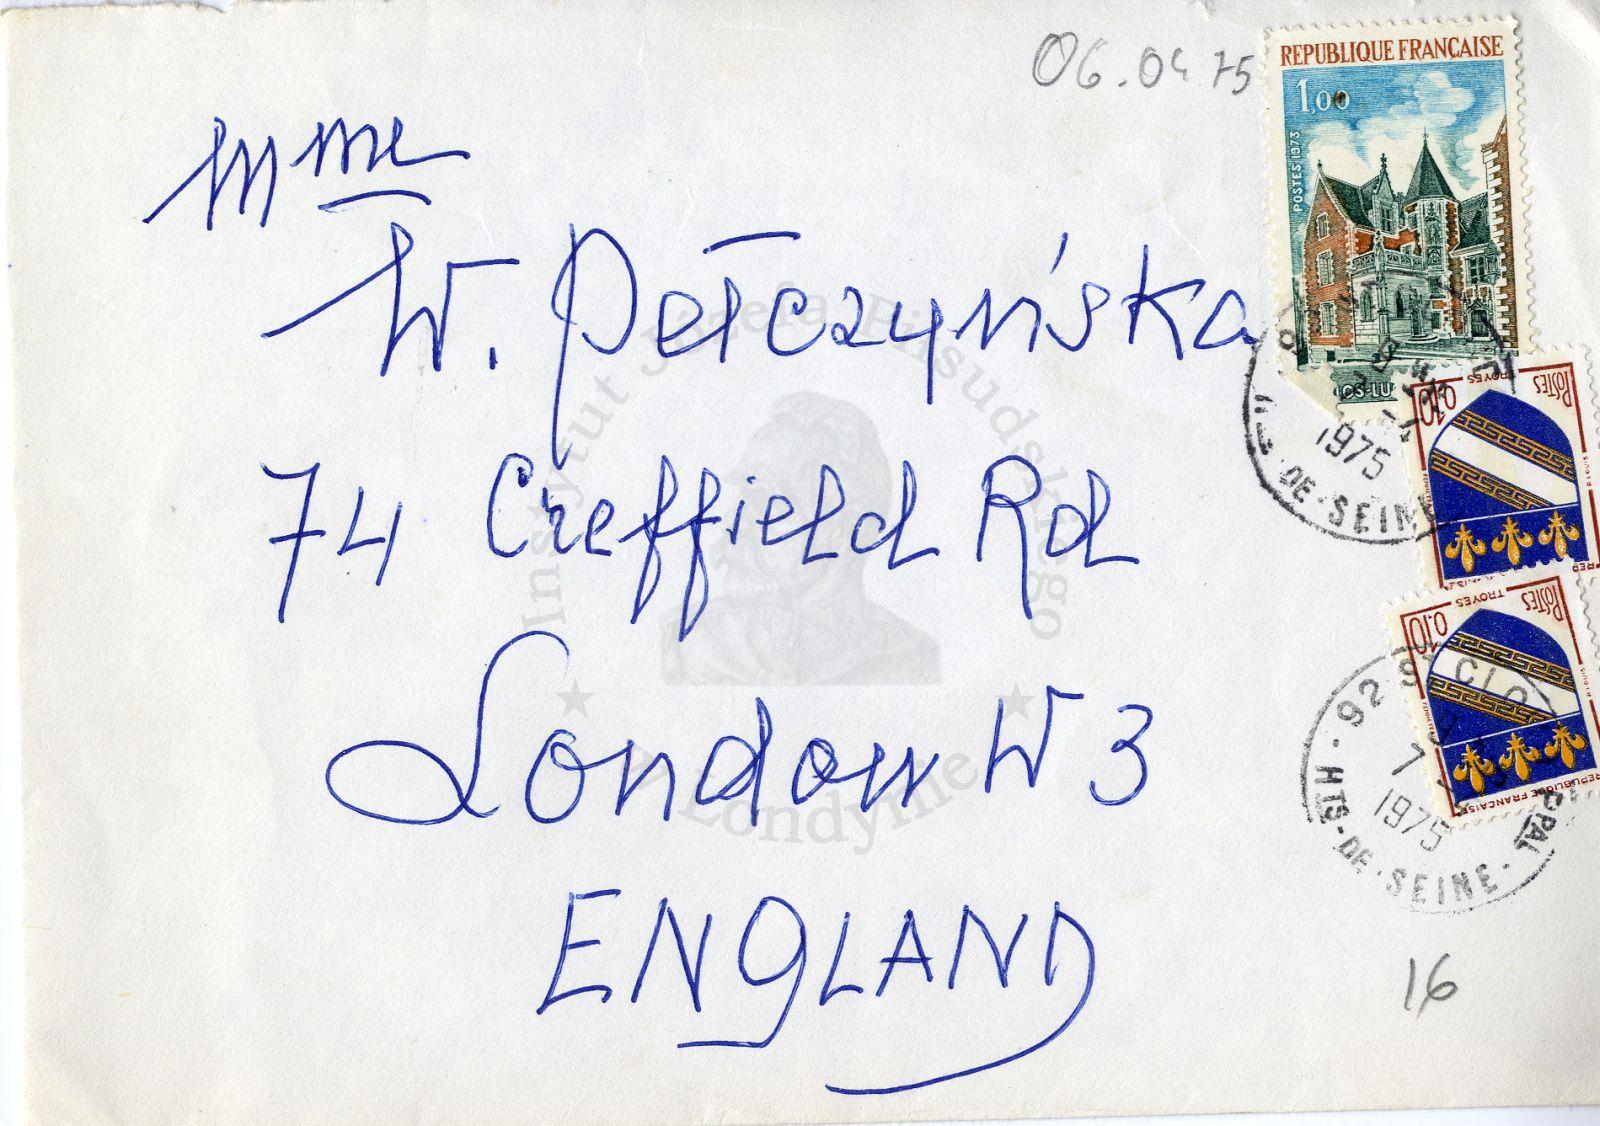 06.04 75
REPUBLIQUE FRANÇAISE
1,00
POSTES 1973
Mme
W. Pełczyńska
74 Creffield Rd
London W 3
ENGLAND
DE-SEINE
1975
0.10
TROYES
POSTES
0.10
TROYES
POSTES
REPUBLIQUE FRANÇAISE
92 ST CLO
PPAL
7
1975
HTS-DE-SEINE
16
Instytut Józefa Piłsudskiego
w Londynie